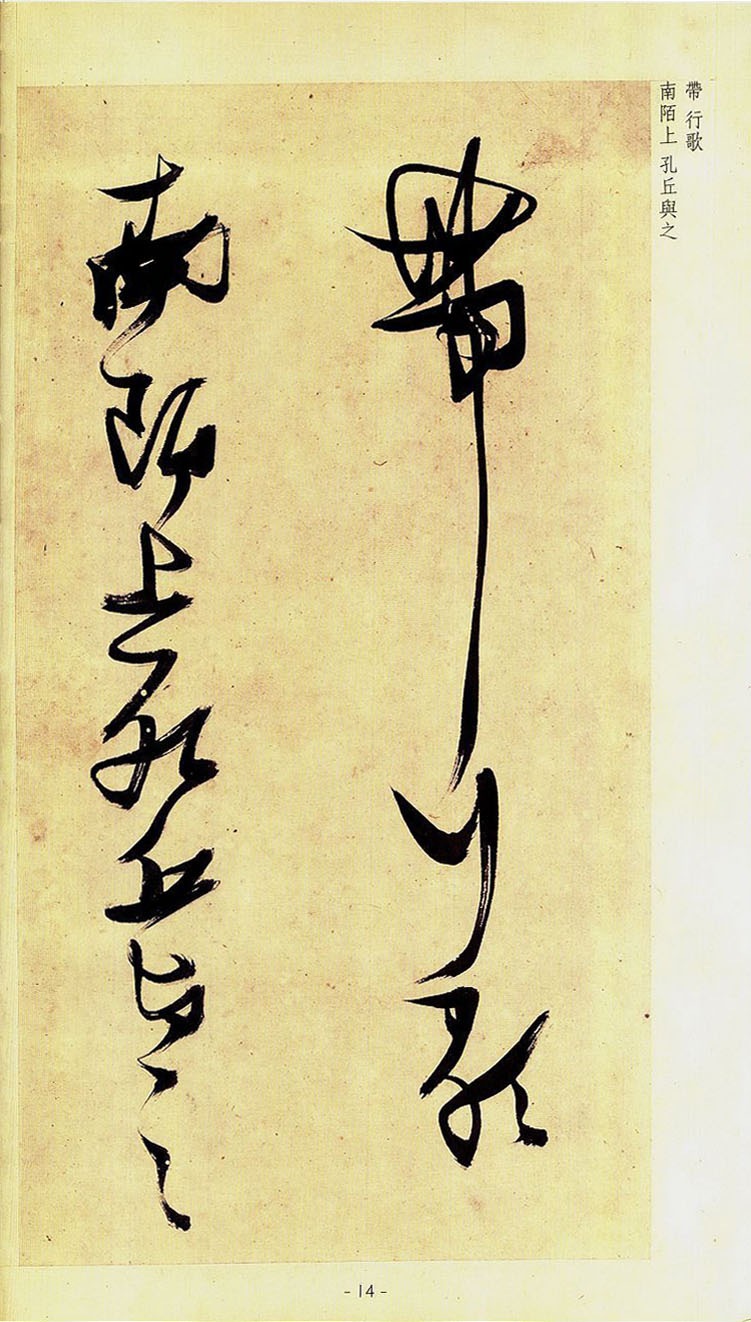 帶 行歌
南陌上 孔丘與之
帶行歌
南陌上孔丘與之
- 14 -